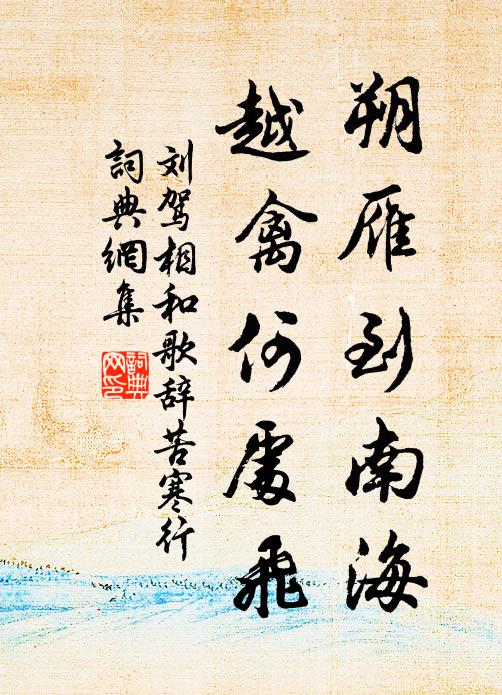 朔雁到南海
越禽何處飛
刘駕相和歌辞苦寒行
詞典網集
詞典
网印